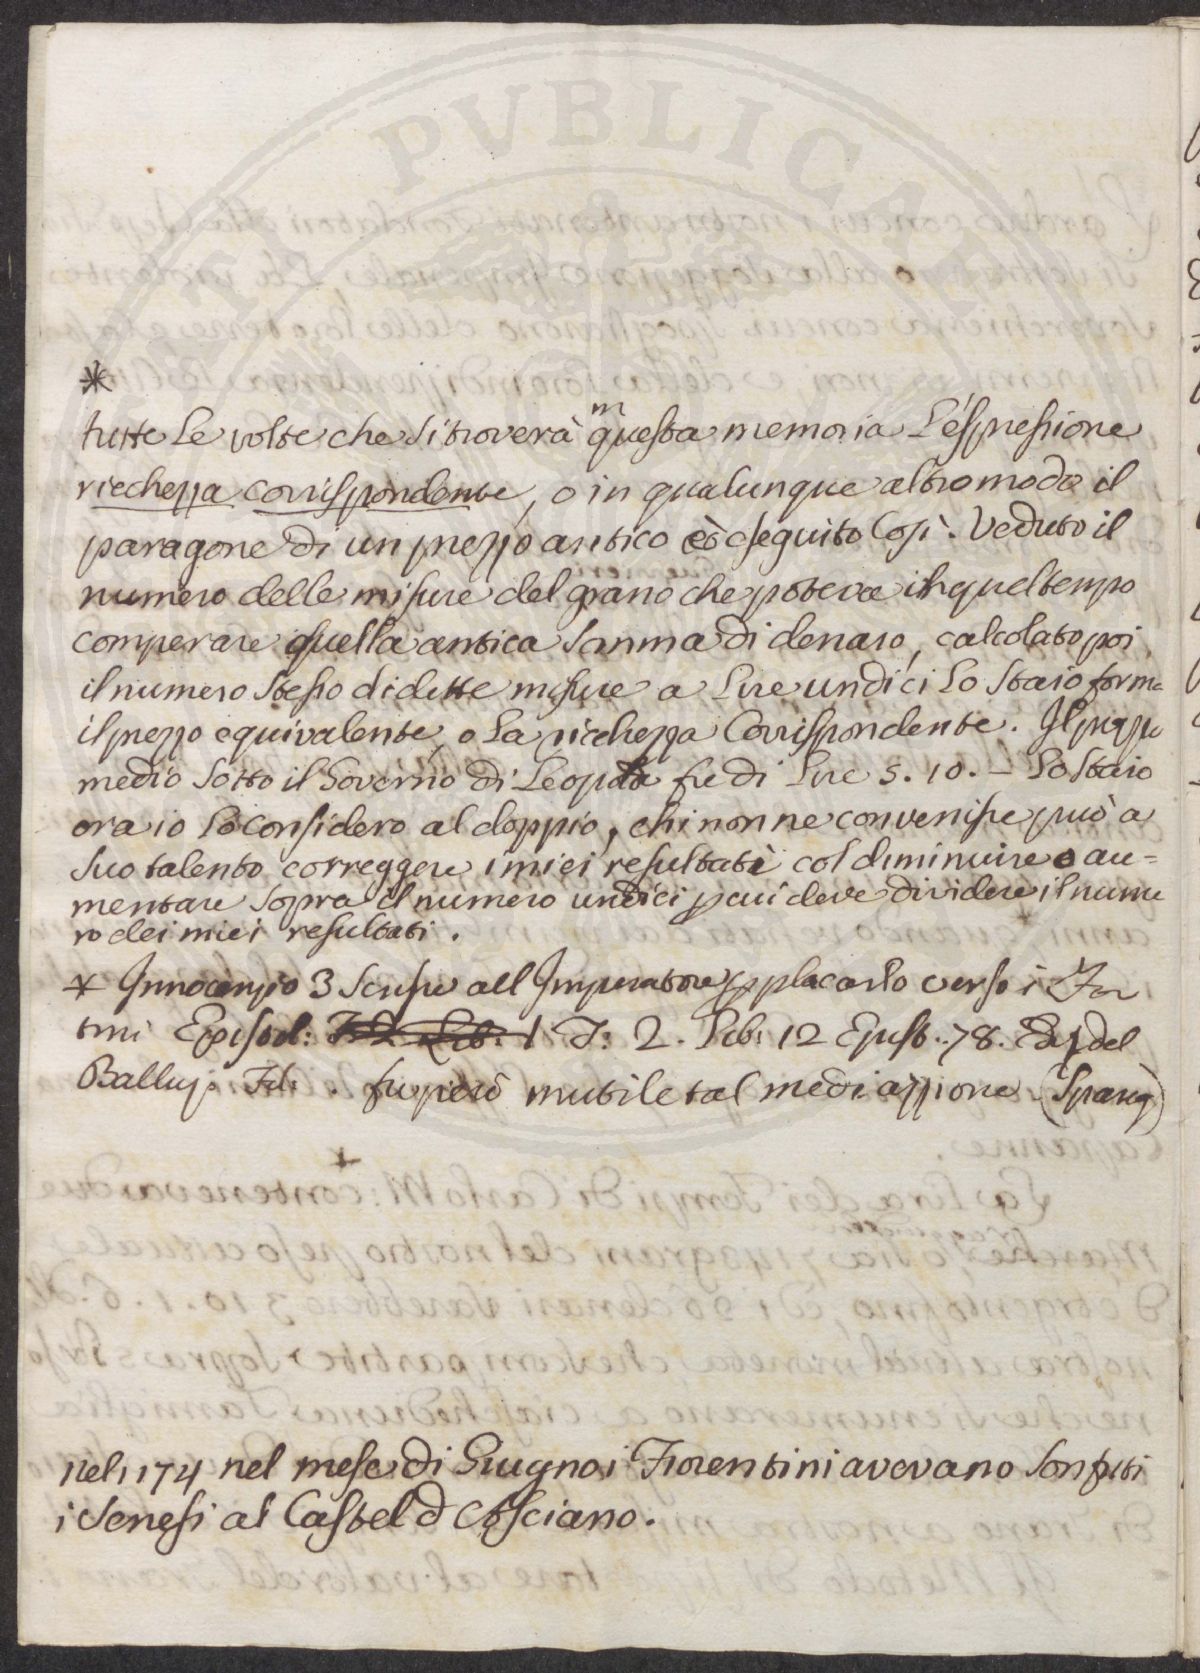 *
tutte le volte che si troverà in questa memoria l'espressione
ricchezza corrispondente, o in qualunque altro modo il
paragone di un prezzo antico è eseguito così. Veduto il
numero delle misure del grano che poteva in quel tempo
comperare quella antica somma di denaro, calcolato poi
il numero stesso di dette misure a Lire undici lo staio forma
il prezzo equivalente, o la ricchezza corrispondente. Il prezzo
medio sotto il Governo di Leopdo fu di Lire 5. 10. – lo staio
ora io lo considero al doppio, chi non ne convenisse può a
suo talento correggere i miei resultati col diminuire o au=
mentare sopra il numero undici per cui deve dividere il nume
ro dei miei resultati.
* Innocenzio 3 scrisse all Imperatore p placarlo verso i
tini Epistol: T: 2. Lib: 12 Epist. 78. del
Balluz. fu però inutile tal mediazzione (Spang)
Nel 1174 nel mese di Giugno i Fiorentini avevano sonfitti
i Senesi al Castel d Asciano.
PVBLICA